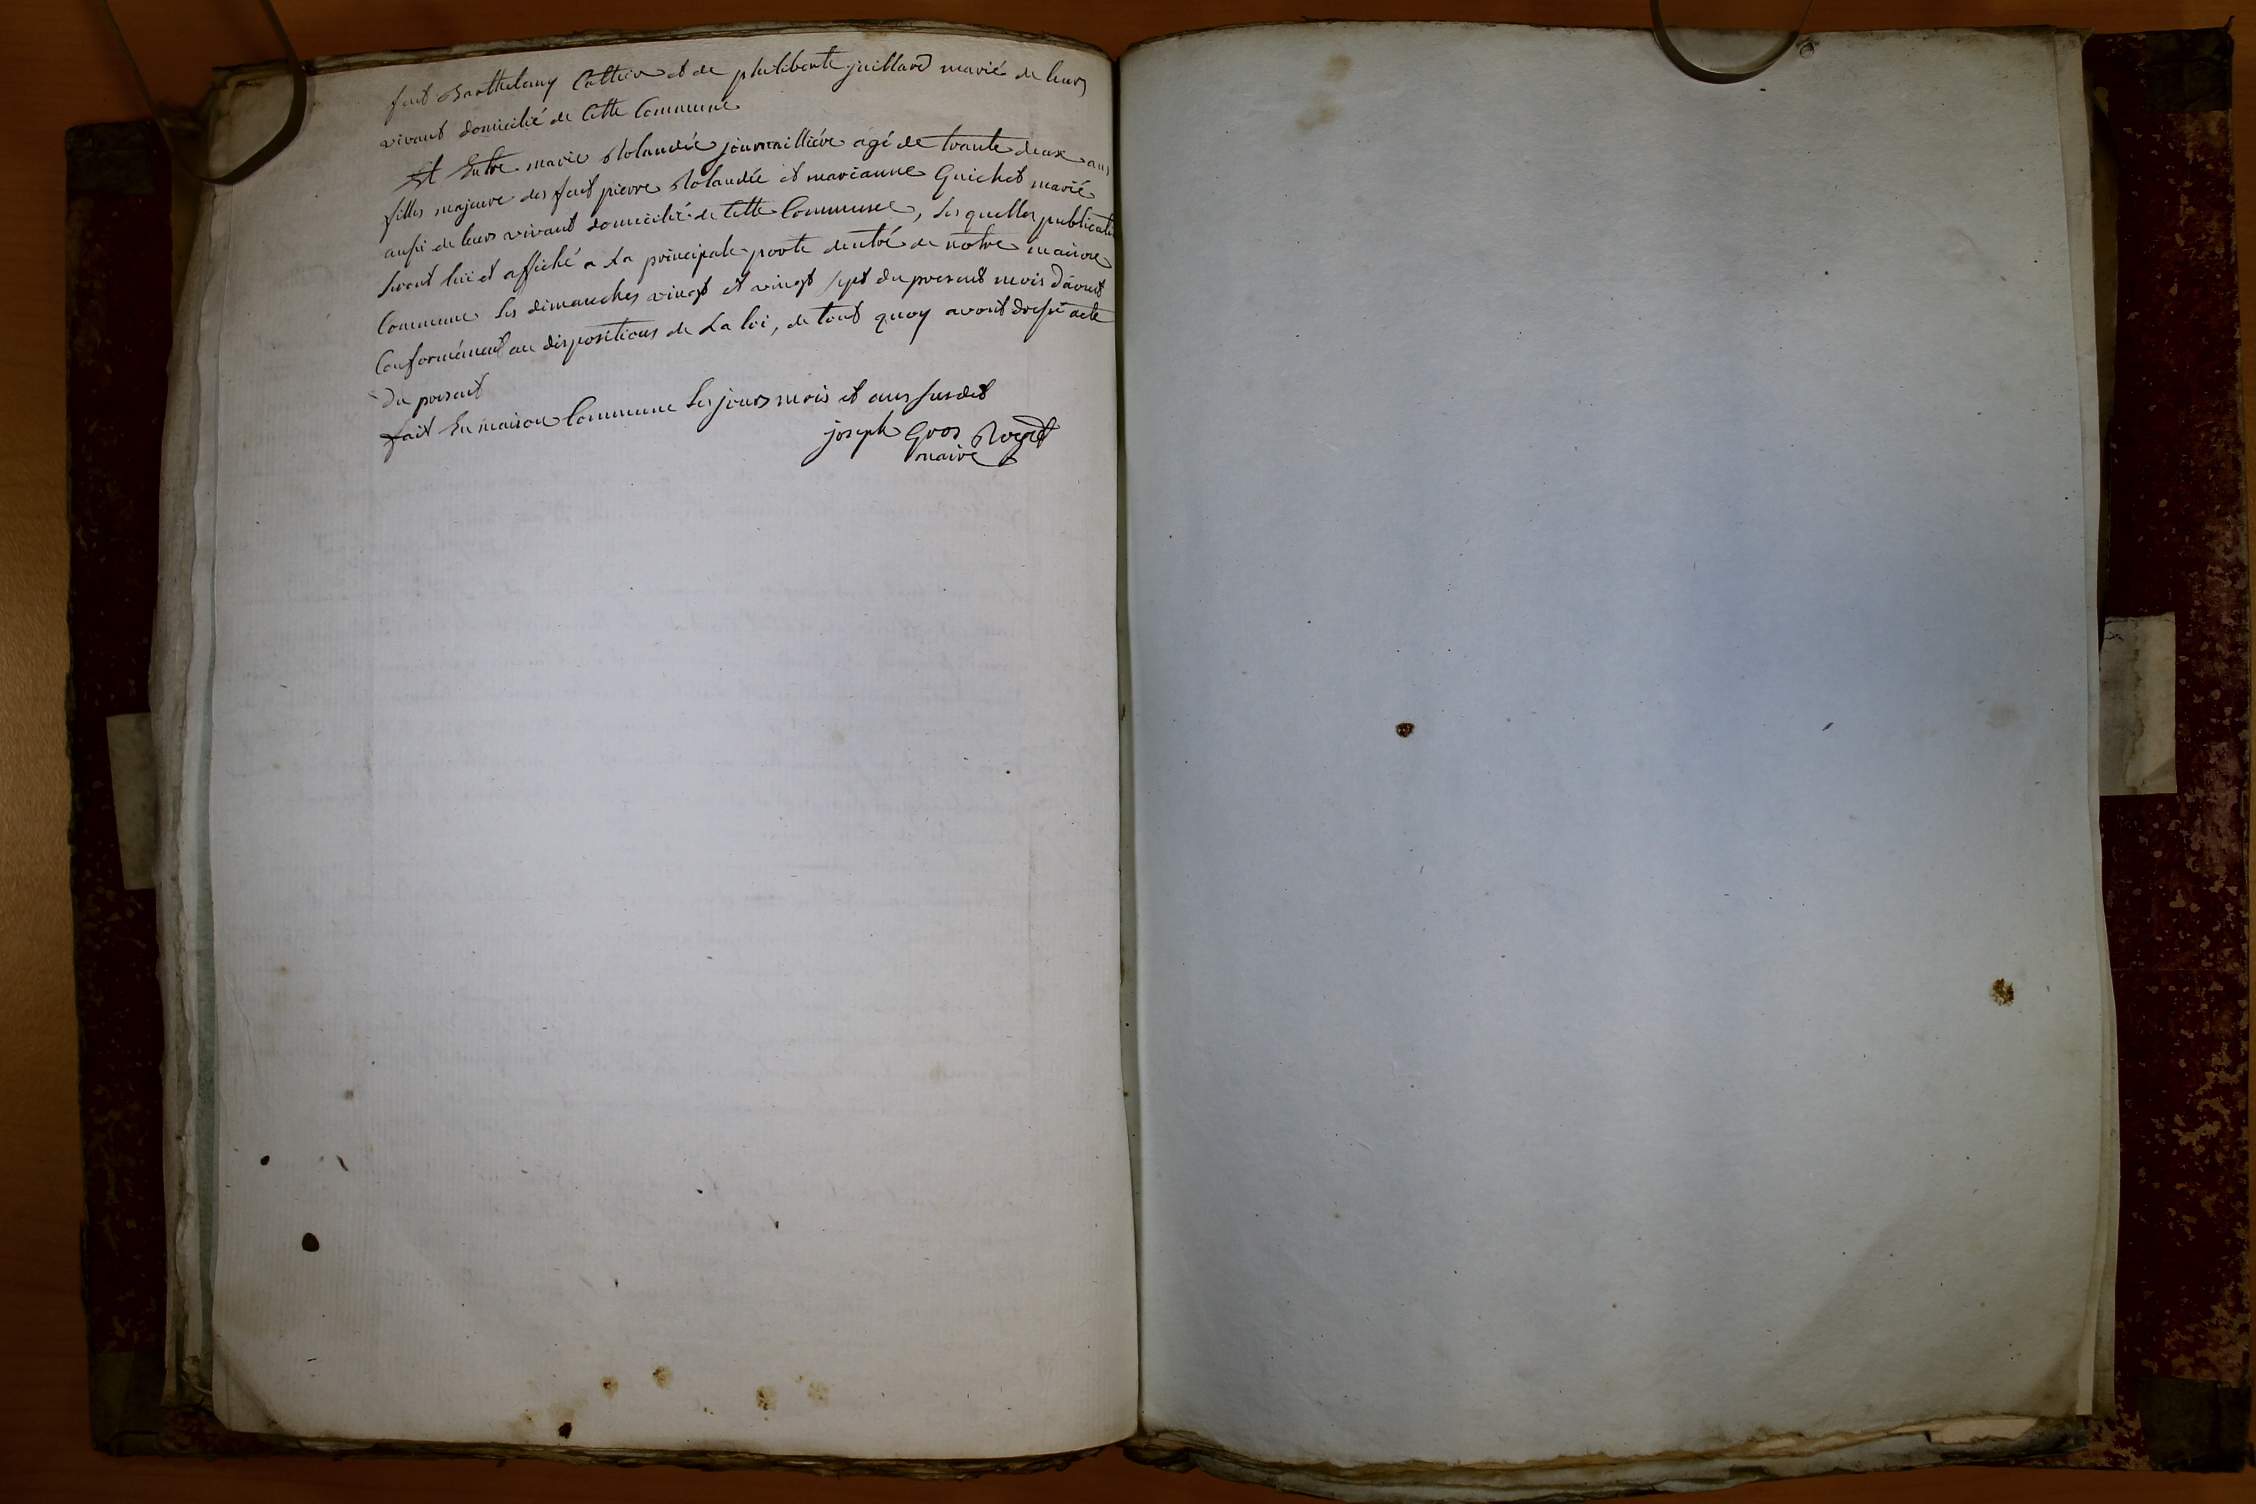 feut Barthelemy Cattin et de philiberte juillard marié de leurs
vivant domicilié de Cette Commune
Et Entre marie Rolandée journailliére agé de trante deux ans
filles majeure des feut pierre Rolandée et marianne Guichet marié
ausi de leurs vivant domicilié de Cette Commune, Les quelles publicati
Seront lüe et affiché a La principale porte dentré de notre maison
Commune Les dimanches vingt et vingt sept du present mois d'avout
Conformément au dispositions de La loi, de tout quoy avont dressé acte
du present
fait En maison Commune Les jours mois et ans susdit
joseph Gros
maire